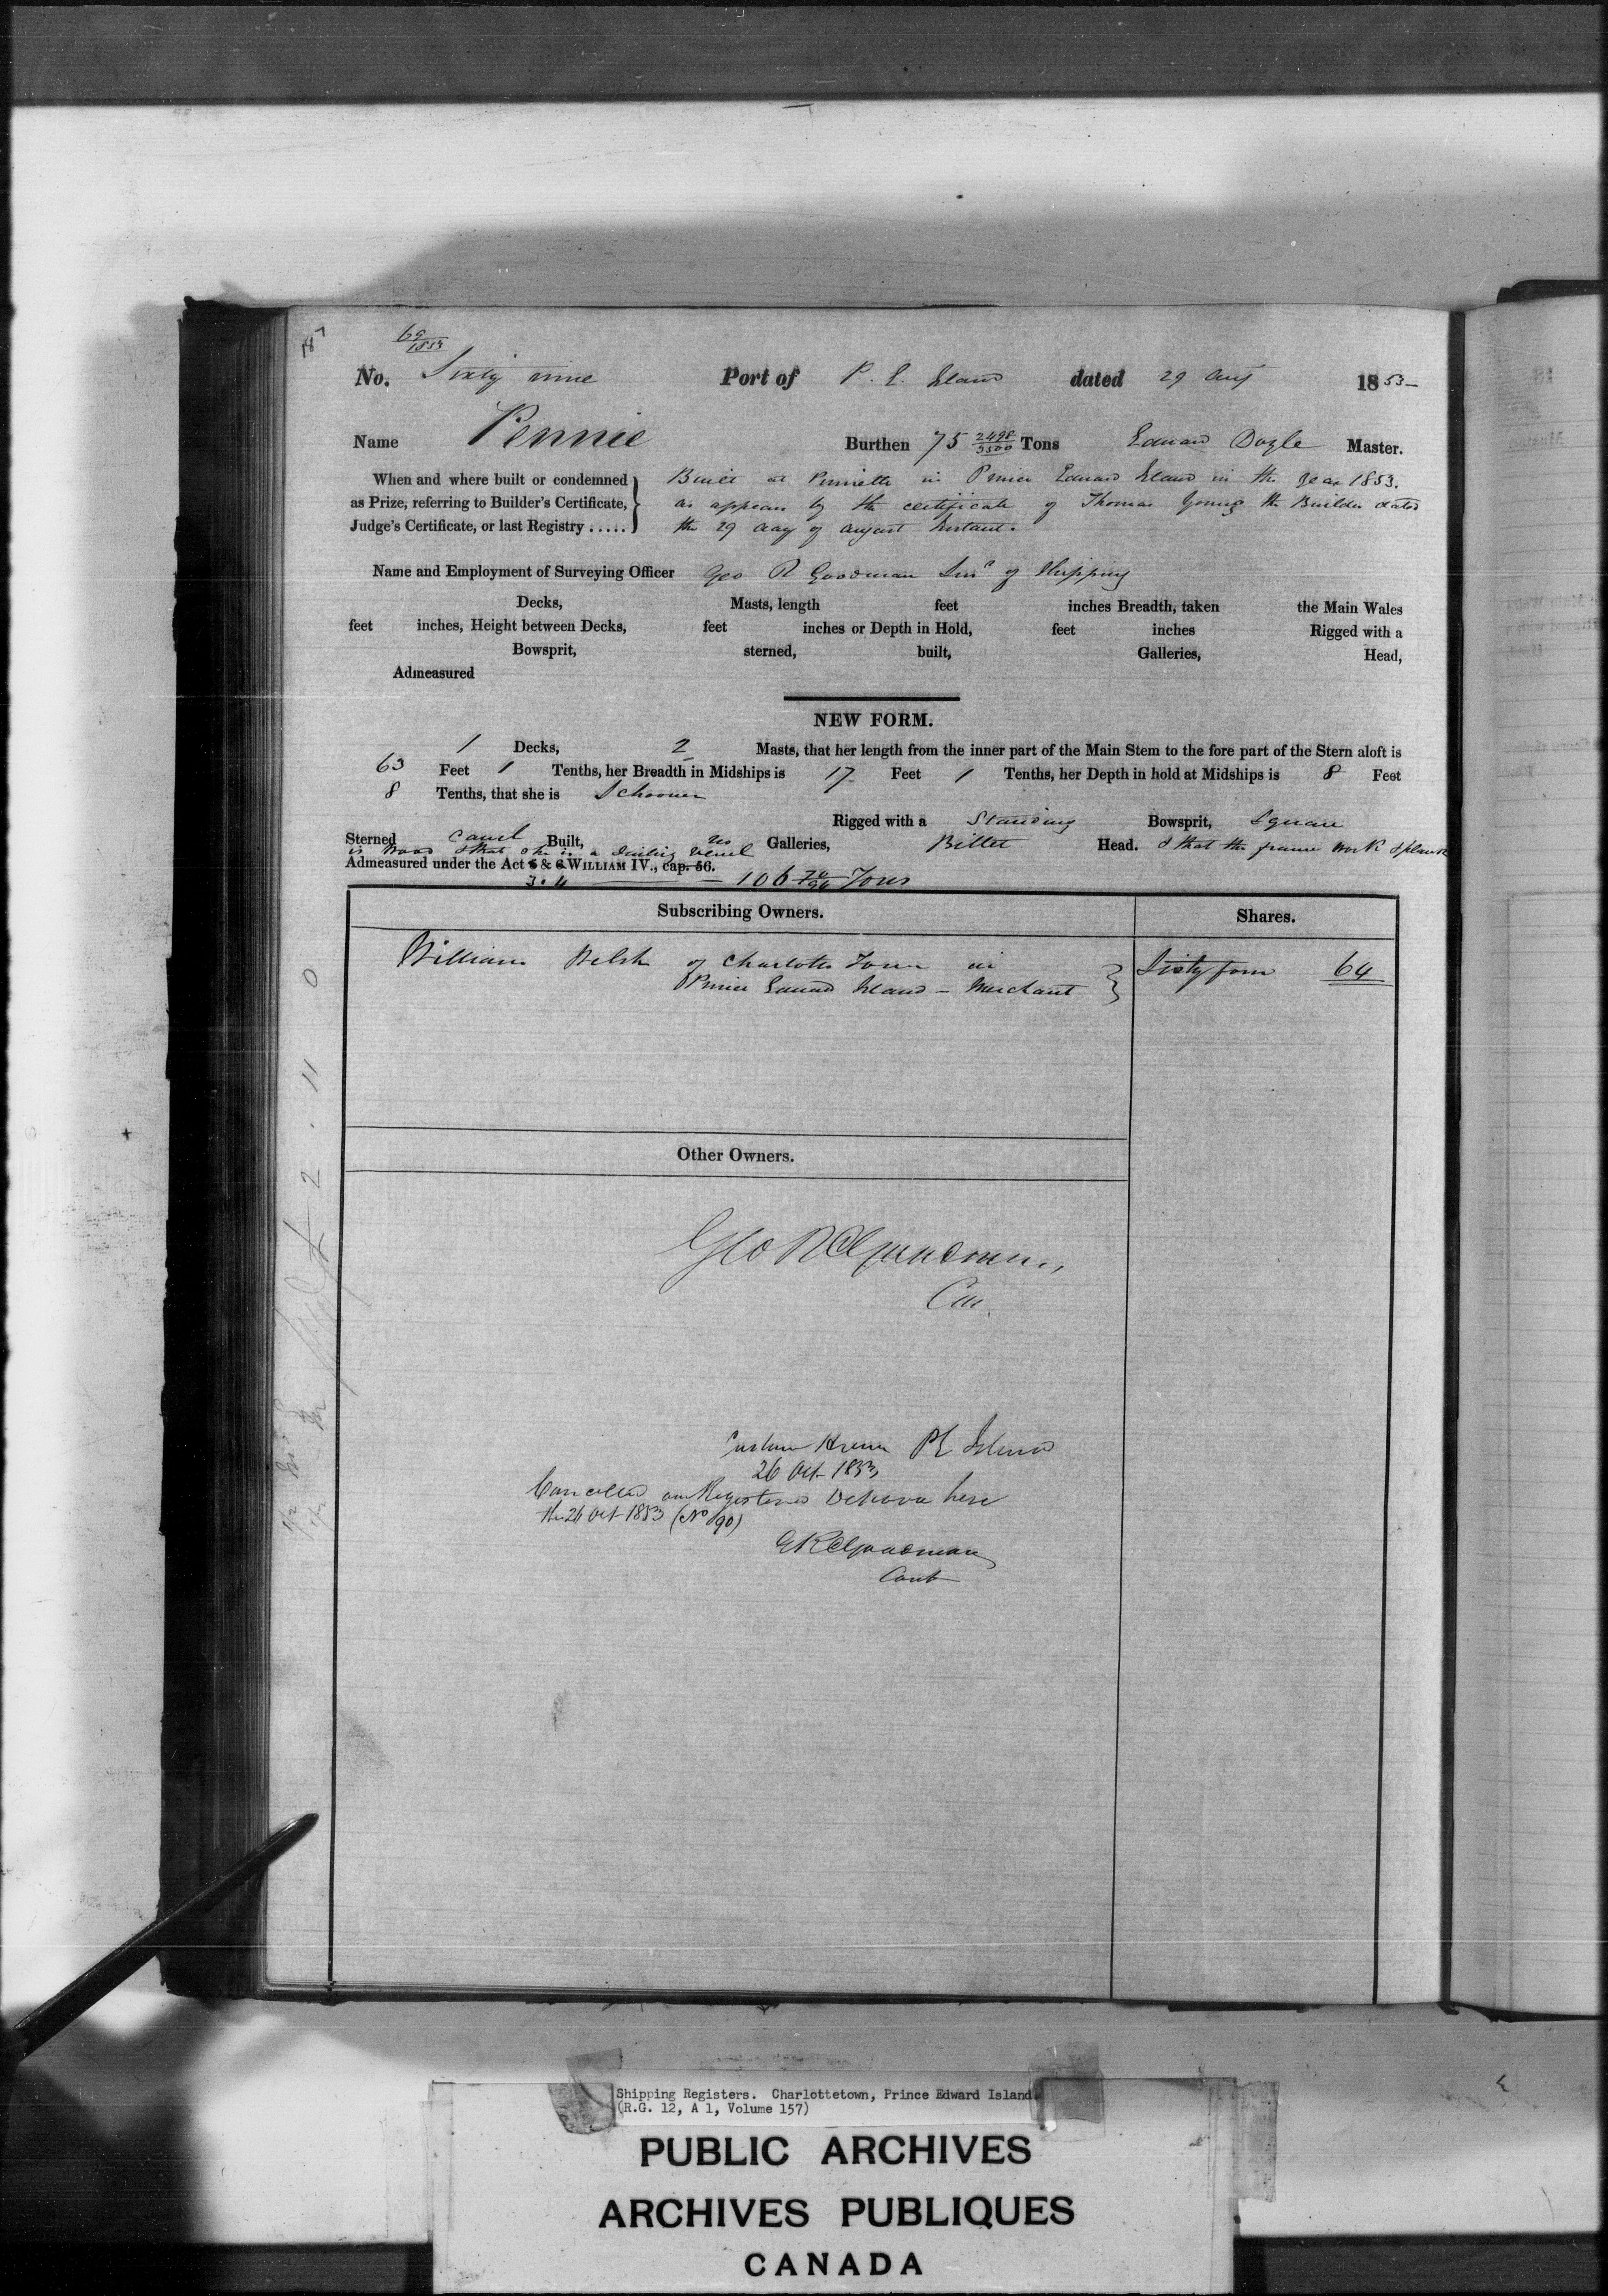 187
69/1853
No. Sixty nine Port of P. E. Island dated 29 Aug 1853-
Name Pennie Burthen 75 2498/3500 Tons Edward Doyle Master.
When and where built or condemned as Prize, referring to Builder's Certificate, Judge's Certificate, or last Registry .....
Built at Pinnette in Prince Edward Island in the Year 1853.
as appears by the certificate of Thomas Young the Builder dated
the 29 day of August Instant.
Name and Employment of Surveying Officer Geo R Goodman Surr of Shipping
Decks, Masts, length feet inches Breadth, taken the Main Wales
feet inches, Height between Decks, feet inches or Depth in Hold, feet inches Rigged with a
Bowsprit, sterned, built, Galleries, Head,
Admeasured
NEW FORM.
1 Decks, 2 Masts, that her length from the inner part of the Main Stem to the fore part of the Stern aloft is
63 Feet 1 Tenths, her Breadth in Midships is 17 Feet 1 Tenths, her Depth in hold at Midships is 8 Feet
8 Tenths, that she is Schooner
Rigged with a Standing Bowsprit, Square
Sterned Carvel Built, No Galleries, Billet Head. & that the frame work & plank
is Wood & that she is a Sailing Vessel
Admeasured under the Act 5 & 6 WILLIAM IV., cap. 56.
3.4 — 106 Tons
Subscribing Owners. Shares.
William Welsh of Charlotte Town in Sixty four 64
Prince Edward Island - Merchant
Other Owners.
Geo R Goodman
Con.
Custom House PE Island
26 Oct 1853
Cancelled and Registered Denovo here
the 26 Oct 1853 (No 90)
GR Goodman
Cont
2 . 11 0
Shipping Registers. Charlottetown, Prince Edward Island.
(R.G. 12, A 1, Volume 157)
PUBLIC ARCHIVES
ARCHIVES PUBLIQUES
CANADA